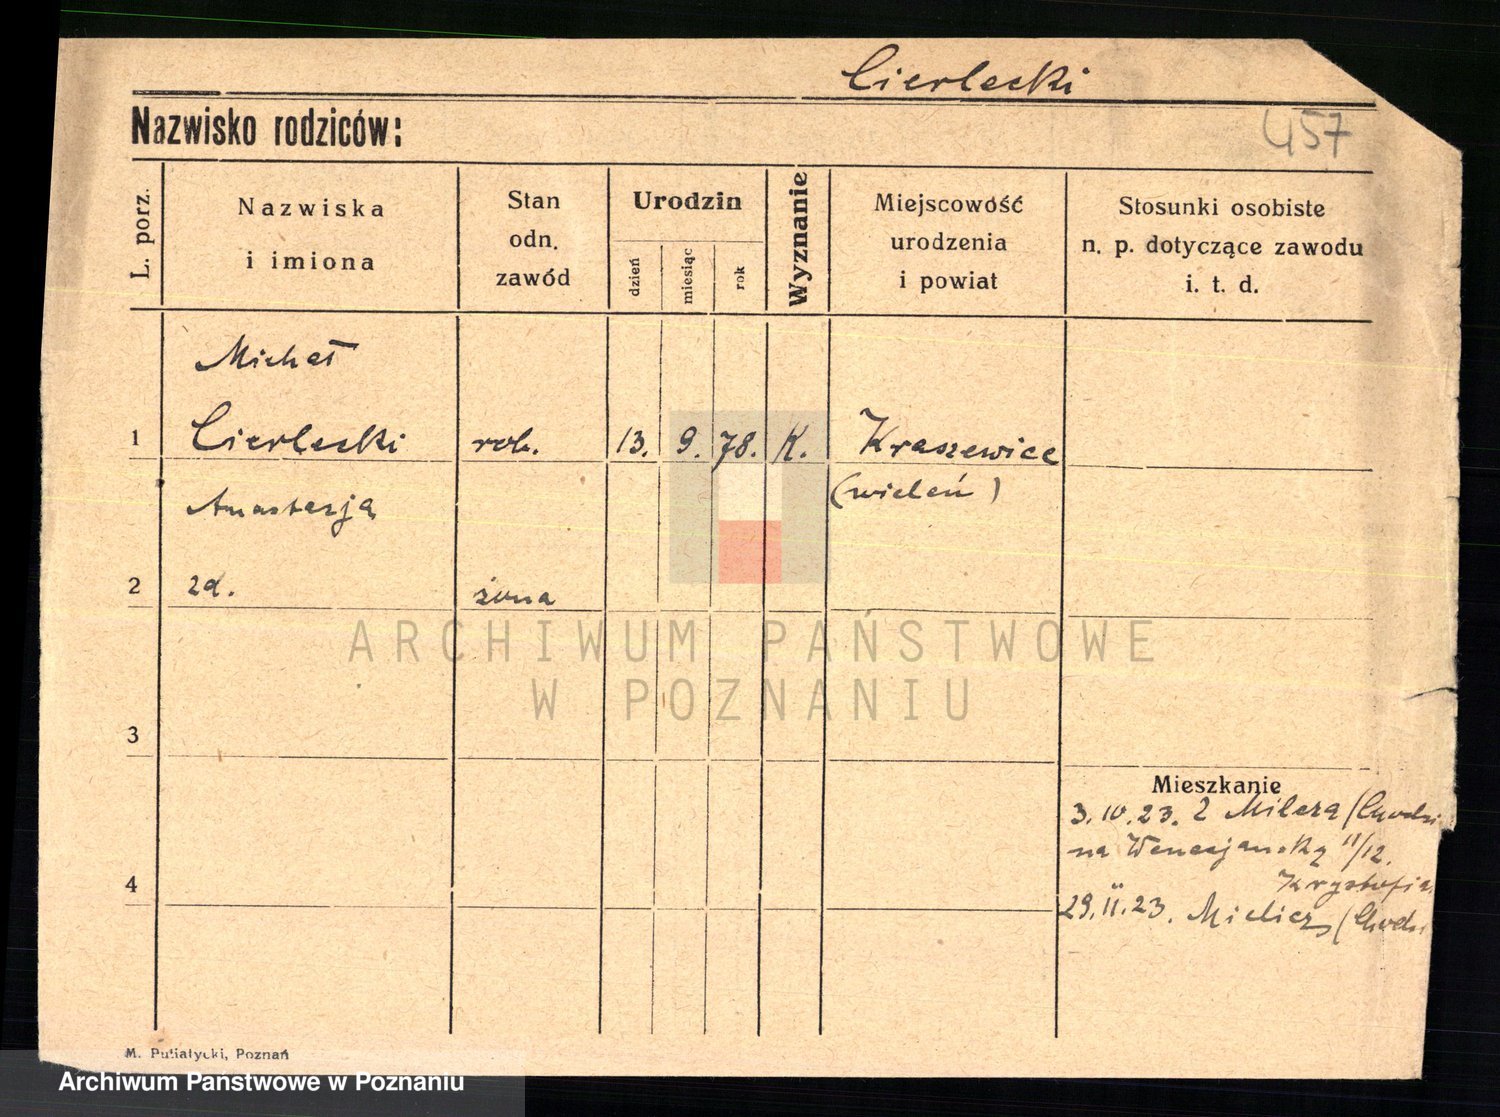 Cierlecki
Nazwisko rodziców:
457
L. porz.
Nazwiska
i imiona
Stan
odn.
zawód
Urodzin
dzień
miesiąc
rok
Wyznanie
Miejscowość
urodzenia
i powiat
Stosunki osobiste
n. p. dotyczące zawodu
i. t. d.
Michał
1 Cierlecki rob. 13. 9. 78. K. Kraszewice
(wieluń)
Anastazja
2 żona
3
Mieszkanie
3.10.23. Z Milcza (Chodzi
na Wenecjańską 11/12.
4
29.11.23. (Chodzi
ARCHIWUM PAŃSTWOWE
W POZNANIU
M. Putiatycki, Poznań
Archiwum Państwowe w Poznaniu